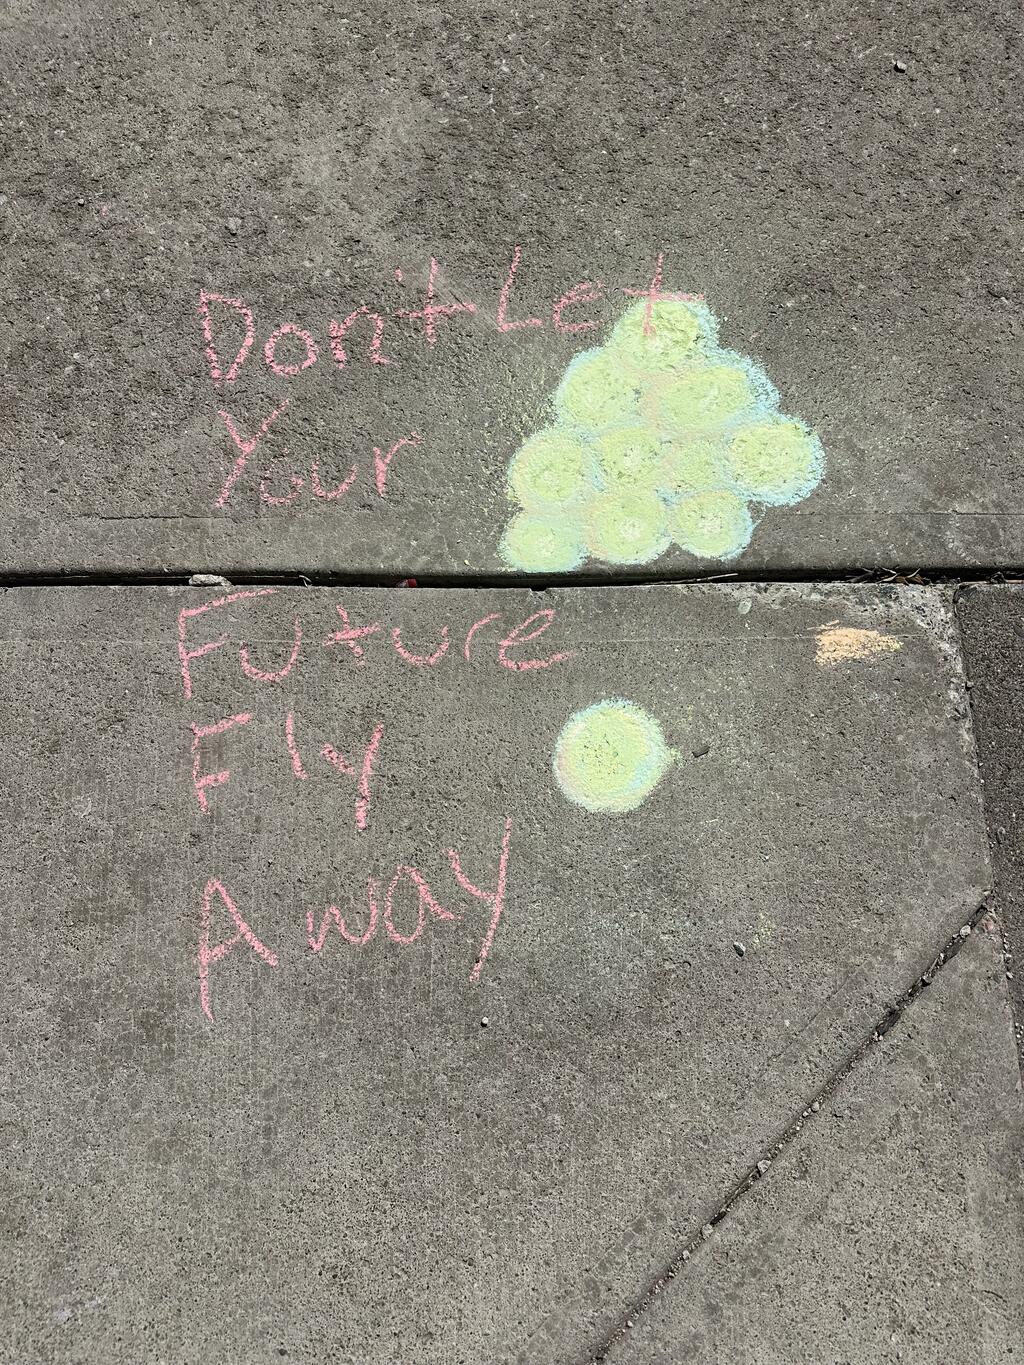 Don't Let
Your
Future
Fly
Away